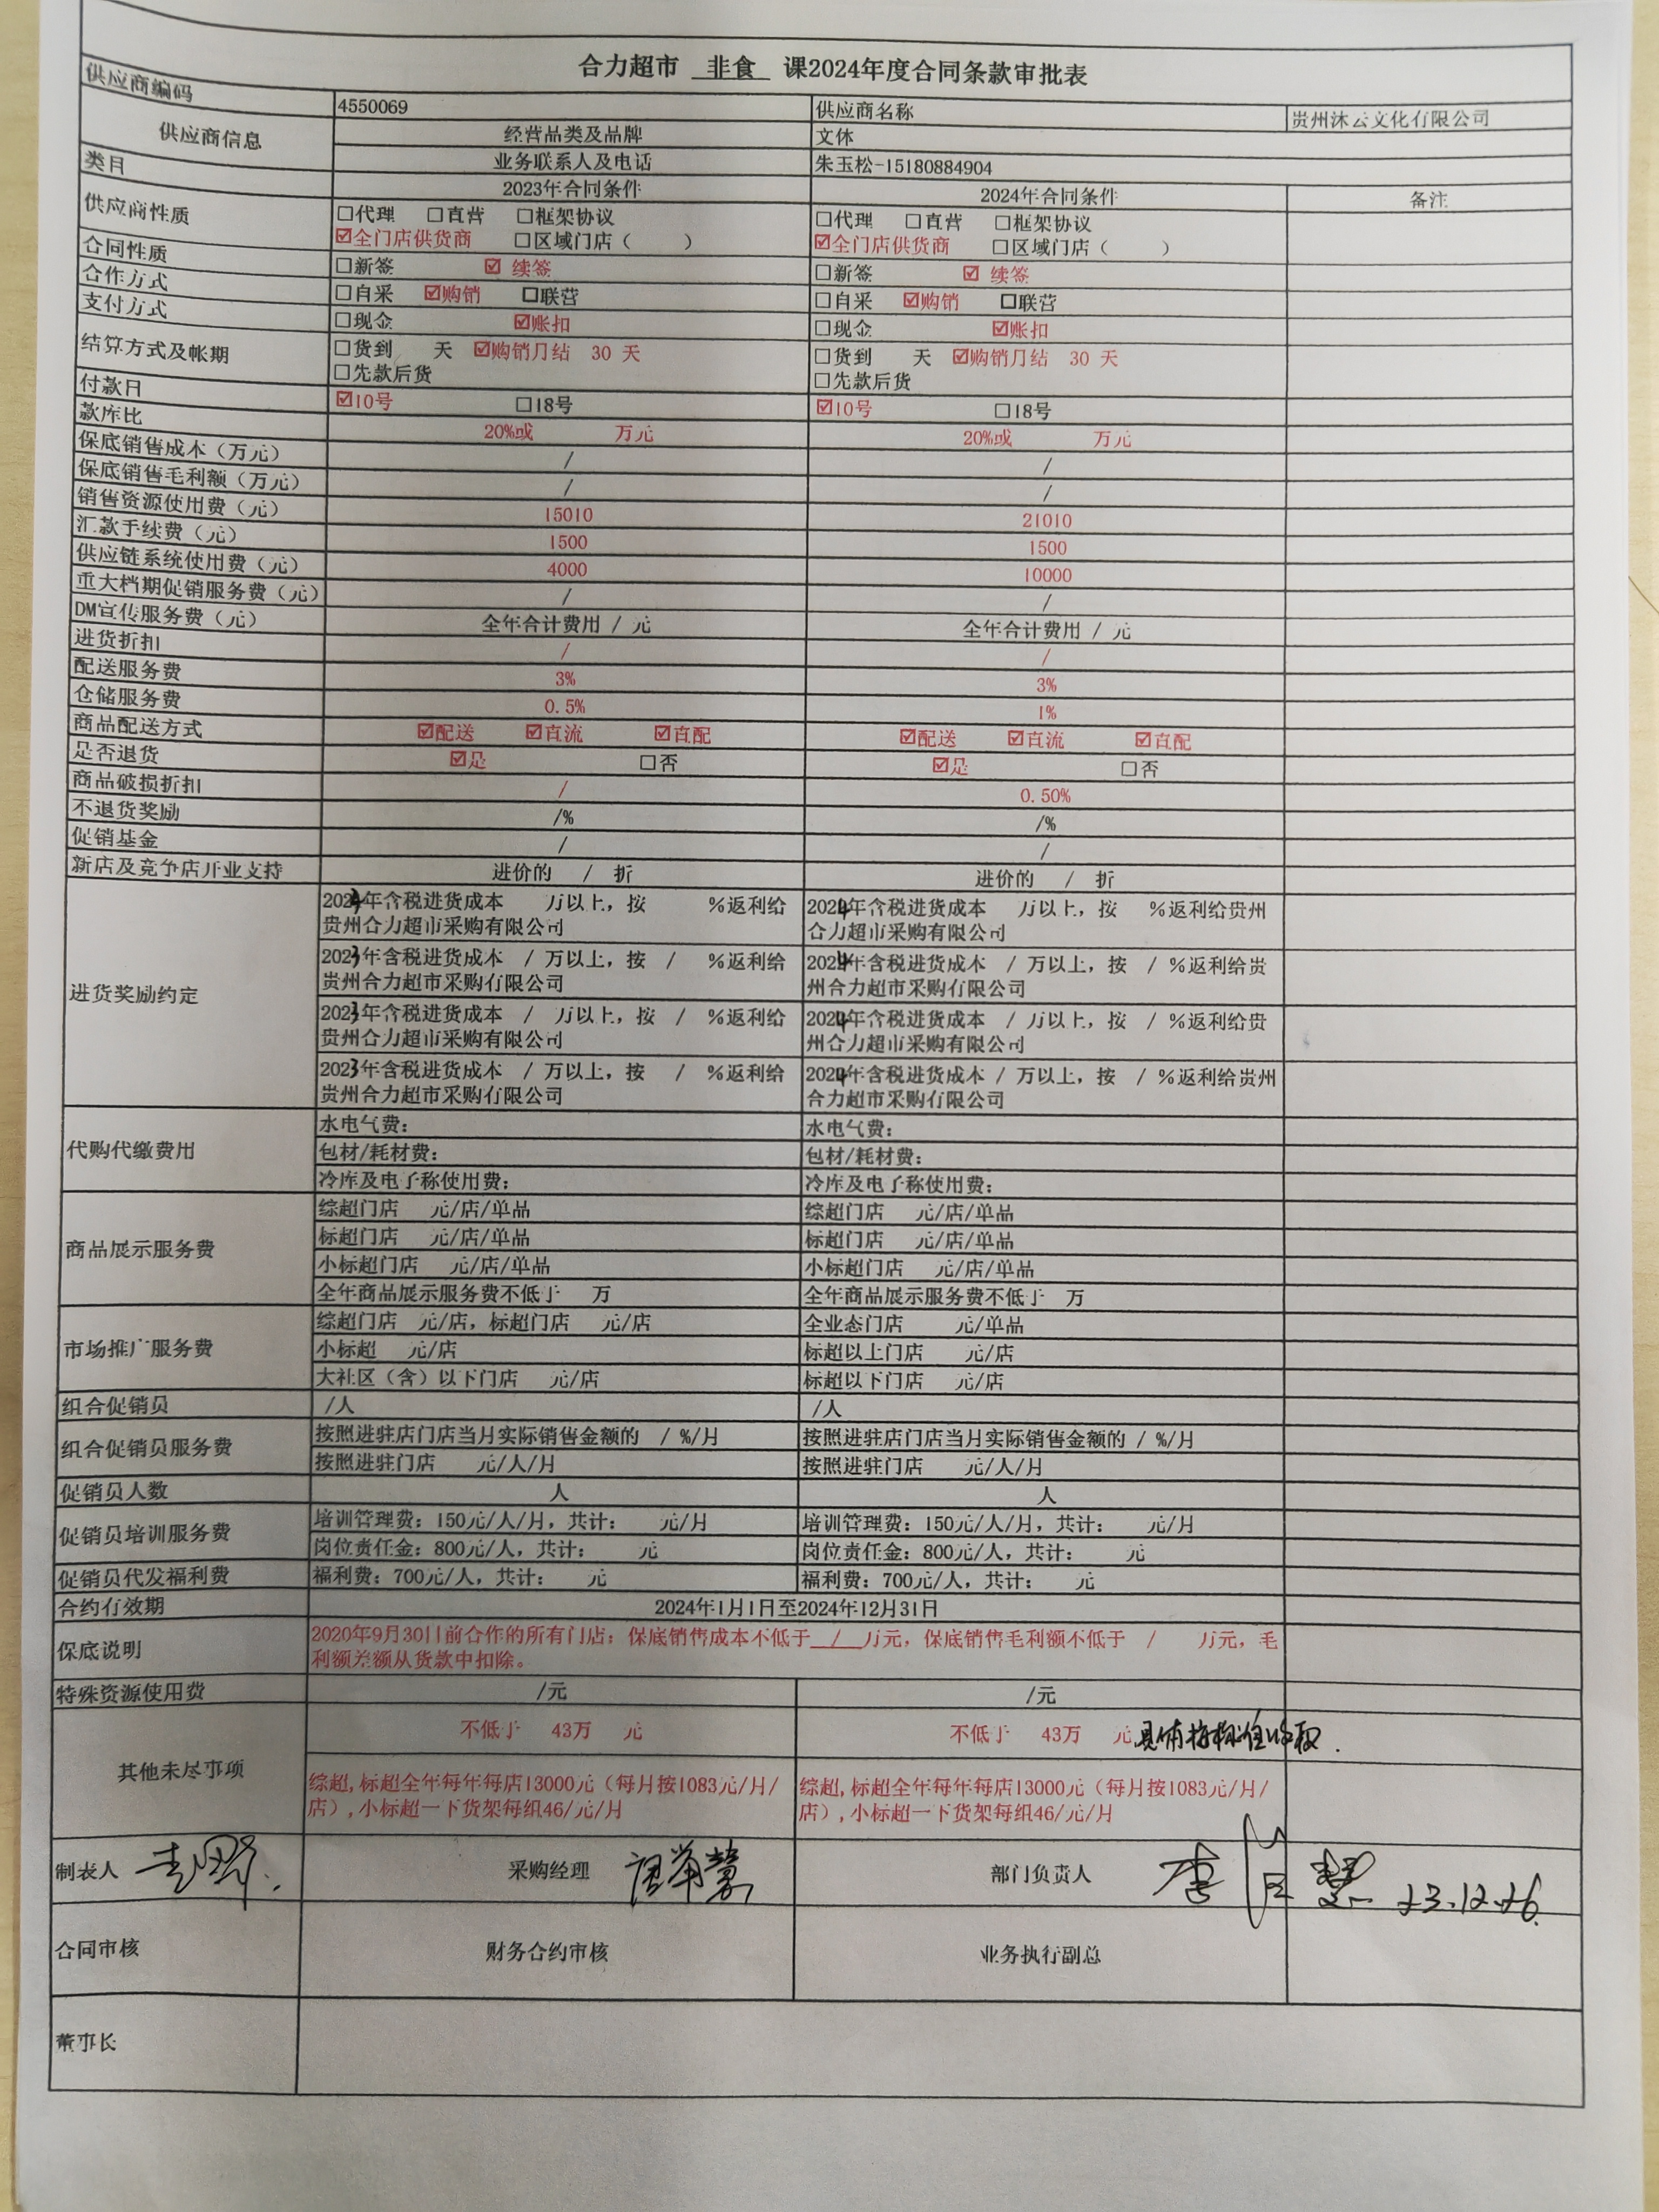 合力超市 非食 课2024年度合同条款审批表
供应商编码 4550069 供应商名称 贵州沐云文化有限公司
供应商信息 经营品类及品牌 文体
业务联系人及电话 朱玉松-15180884904
类目 2023年合同条件 2024年合同条件 备注
供应商性质 □代理 □直营 □框架协议 □代理 □直营 □框架协议
☑全门店供货商 □区域门店（ ） ☑全门店供货商 □区域门店（ ）
合同性质 □新签 ☑ 续签 □新签 ☑ 续签
合作方式 □自采 ☑购销 □联营 □自采 ☑购销 □联营
支付方式 □现金 ☑账扣 □现金 ☑账扣
结算方式及帐期 □货到 天 ☑购销月结 30 天 □货到 天 ☑购销月结 30 天
□先款后货 □先款后货
付款日 ☑10号 □18号 ☑10号 □18号
款库比 20%或 万元 20%或 万元
保底销售成本（万元） / /
保底销售毛利额（万元） / /
销售资源使用费（元） 15010 21010
汇款手续费（元） 1500 1500
供应链系统使用费（元） 4000 10000
重大档期促销服务费（元） / /
DM宣传服务费（元） 全年合计费用 / 元 全年合计费用 / 元
进货折扣 / /
配送服务费 3% 3%
仓储服务费 0.5% 1%
商品配送方式 ☑配送 ☑直流 ☑直配 ☑配送 ☑直流 ☑直配
是否退货 ☑是 □否 ☑是 □否
商品破损折扣 / 0.50%
不退货奖励 /% /%
促销基金 / /
新店及竞争店开业支持 进价的 / 折 进价的 / 折
进货奖励约定
2023年含税进货成本 万以上，按 %返利给 2024年含税进货成本 万以上，按 %返利给贵州
贵州合力超市采购有限公司 合力超市采购有限公司
2023年含税进货成本 / 万以上，按 / %返利给 2024年含税进货成本 / 万以上，按 / %返利给贵
贵州合力超市采购有限公司 州合力超市采购有限公司
2023年含税进货成本 / 万以上，按 / %返利给 2024年含税进货成本 / 万以上，按 / %返利给贵
贵州合力超市采购有限公司 州合力超市采购有限公司
2023年含税进货成本 / 万以上，按 / %返利给 2024年含税进货成本 / 万以上，按 / %返利给贵州
贵州合力超市采购有限公司 合力超市采购有限公司
代购代缴费用
水电气费： 水电气费：
包材/耗材费： 包材/耗材费：
冷库及电子称使用费： 冷库及电子称使用费：
商品展示服务费
综超门店 元/店/单品 综超门店 元/店/单品
标超门店 元/店/单品 标超门店 元/店/单品
小标超门店 元/店/单品 小标超门店 元/店/单品
全年商品展示服务费不低于 万 全年商品展示服务费不低于 万
市场推广服务费
综超门店 元/店，标超门店 元/店 全业态门店 元/单品
小标超 元/店 标超以上门店 元/店
大社区（含）以下门店 元/店 标超以下门店 元/店
组合促销员 /人 /人
组合促销员服务费 按照进驻店门店当月实际销售金额的 / %/月 按照进驻店门店当月实际销售金额的 / %/月
按照进驻门店 元/人/月 按照进驻门店 元/人/月
促销员人数 人 人
促销员培训服务费 培训管理费：150元/人/月，共计： 元/月 培训管理费：150元/人/月，共计： 元/月
岗位责任金：800元/人，共计： 元 岗位责任金：800元/人，共计： 元
促销员代发福利费 福利费：700元/人，共计： 元 福利费：700元/人，共计： 元
合约有效期 2024年1月1日至2024年12月31日
保底说明 2020年9月30日前合作的所有门店：保底销售成本不低于 / 万元，保底销售毛利额不低于 / 万元，毛
利额差额从货款中扣除。
特殊资源使用费 /元 /元
其他未尽事项
不低于 43万 元 不低于 43万 元 具体按标准收取.
综超,标超全年每年每店13000元（每月按1083元/月/ 综超,标超全年每年每店13000元（每月按1083元/月/
店）,小标超一下货架每组46/元/月 店）,小标超一下货架每组46/元/月
制表人 采购经理 部门负责人 李 慧 23.12.26
合同审核 财务合约审核 业务执行副总
董事长